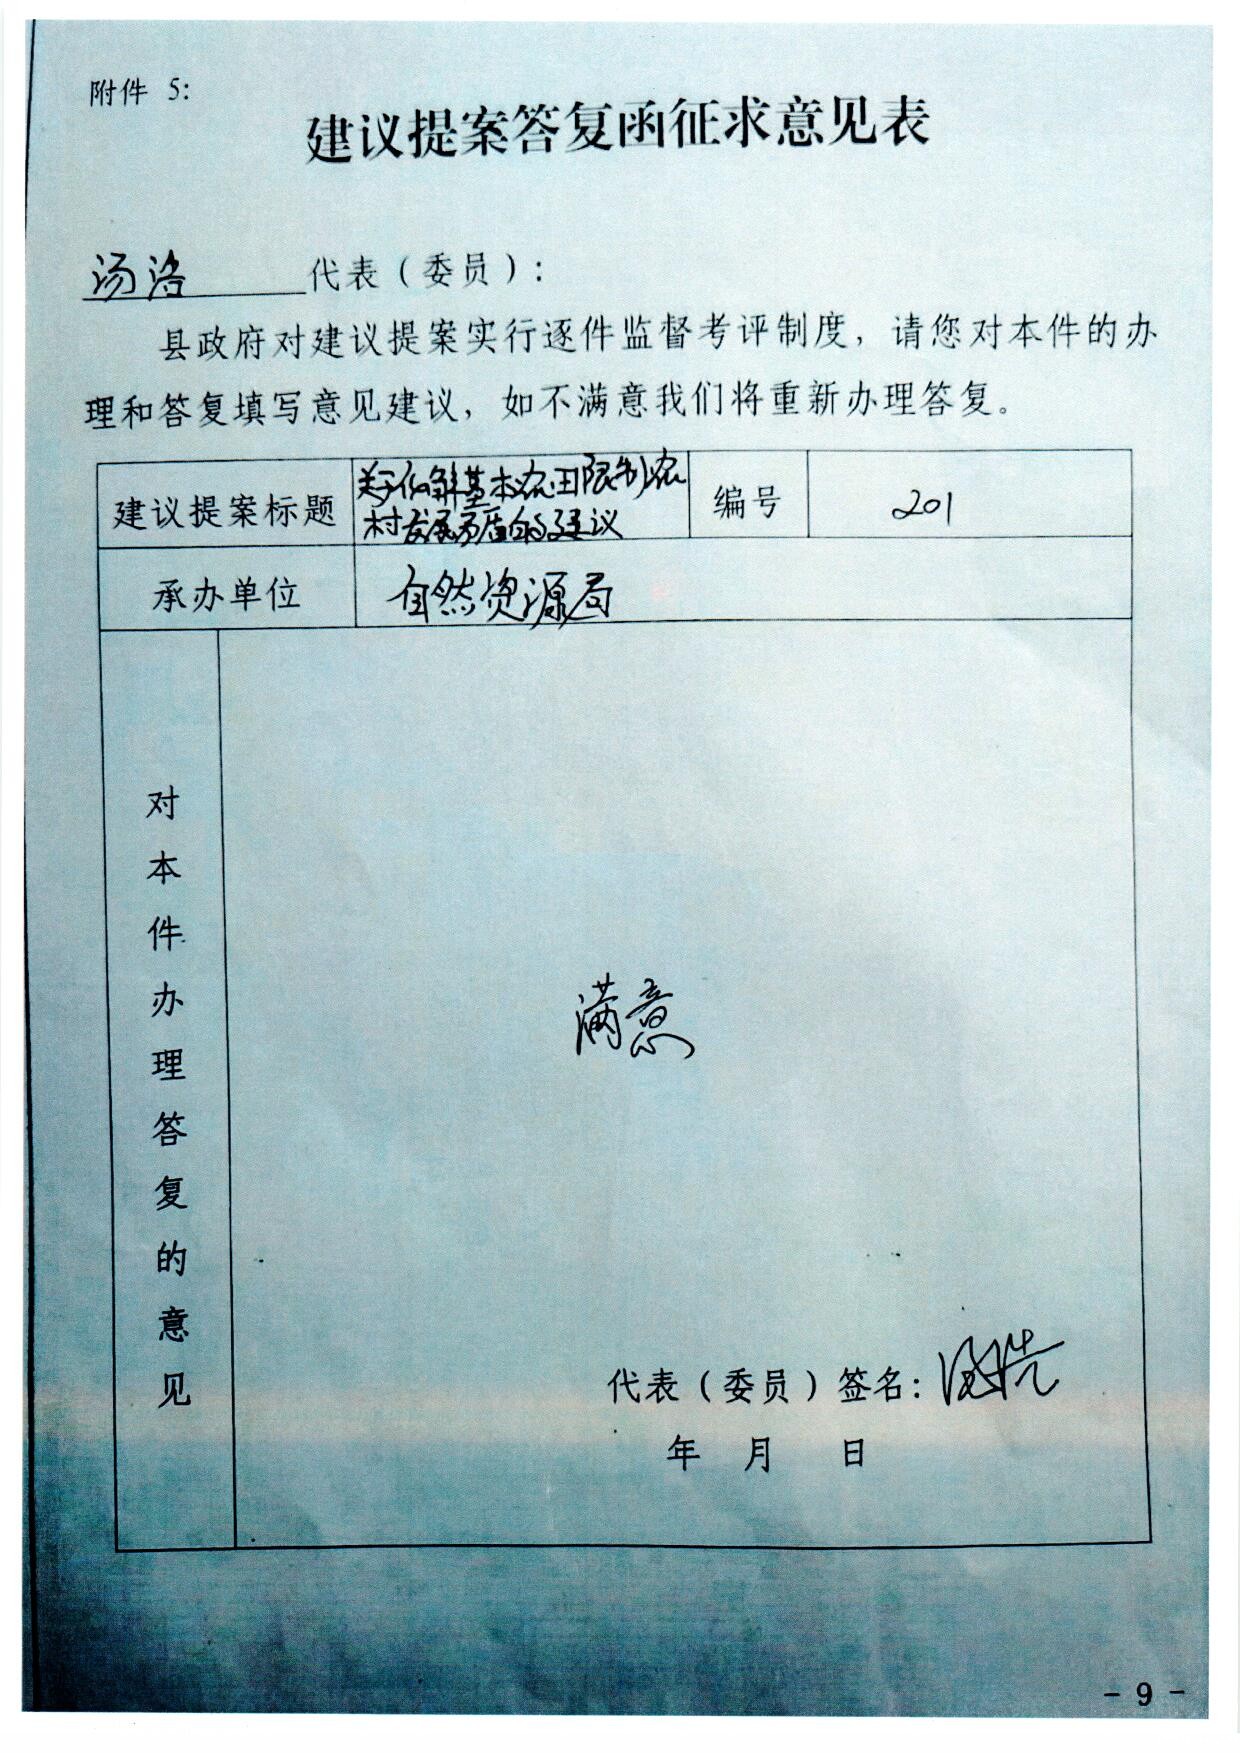 附件 5:
建议提案答复函征求意见表
汤洛 代表（委员）:
县政府对建议提案实行逐件监督考评制度，请您对本件的办
理和答复填写意见建议，如不满意我们将重新办理答复。
建议提案标题 关于化解基本农田限制农
村发展矛盾的建议
编号 201
承办单位 自然资源局
对本件办理答复的意见
满意
代表（委员）签名:
年 月 日
- 9 -